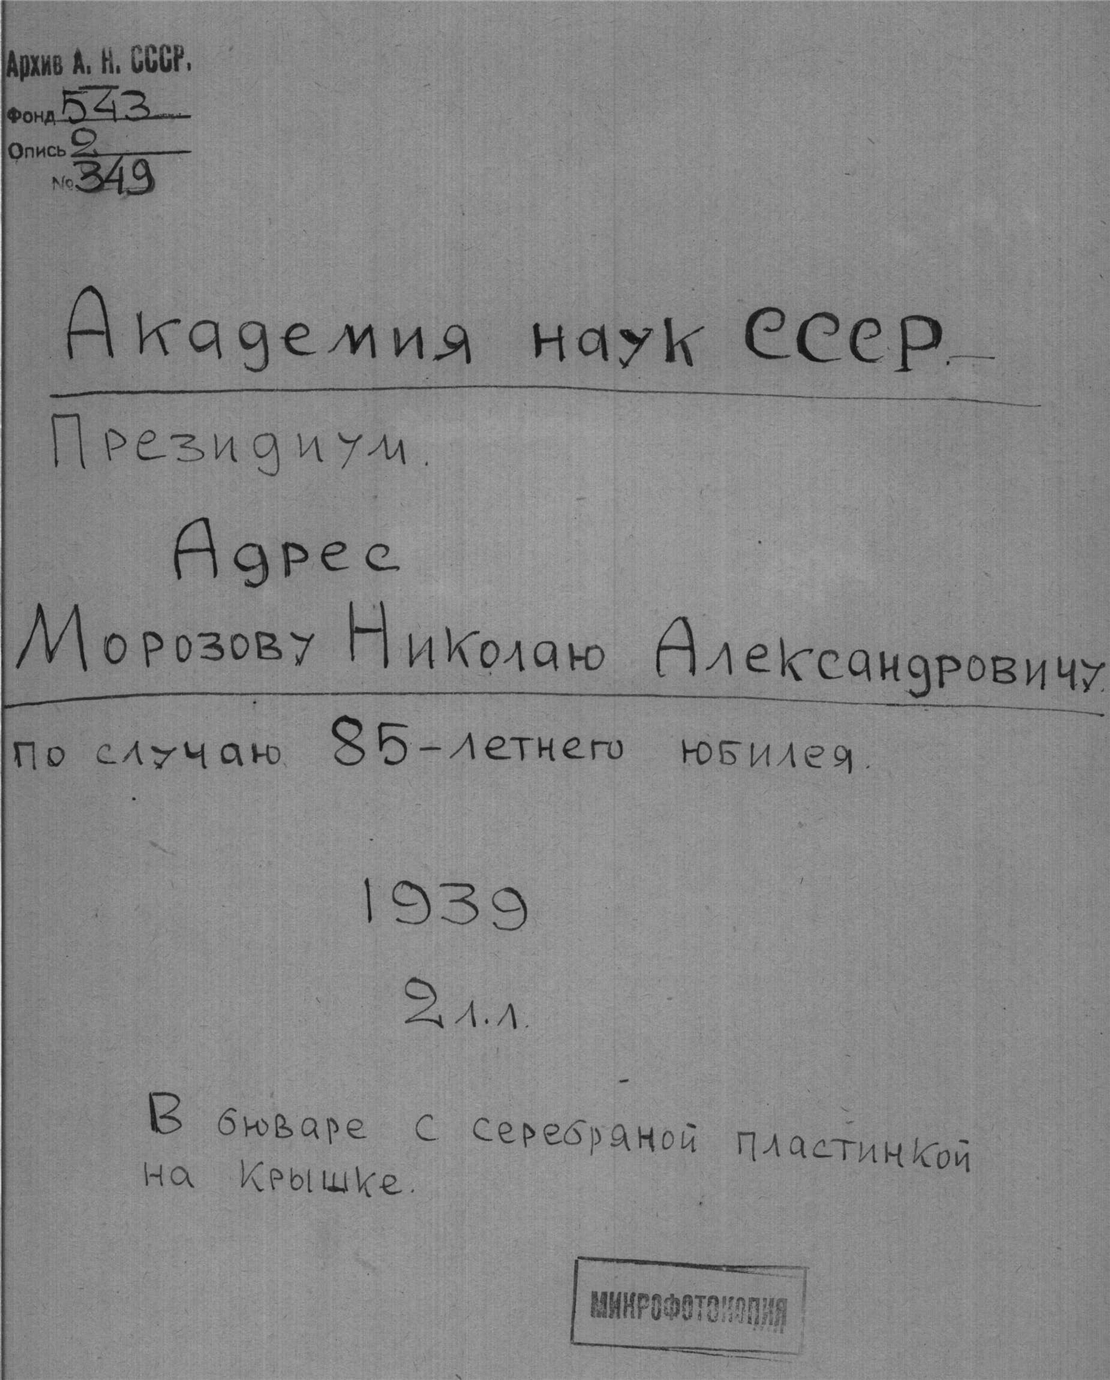 Архив А. Н. СССР.
Фонд 543
Опись 2
№ 349
Академия наук СССР.
Президиум.
Адрес
Морозову Николаю Александровичу
по случаю 85-летнего юбилея.
1939
2 л.л.
В бюваре с серебряной пластинкой
на крышке.
МИКРОФОТОКОПИЯ